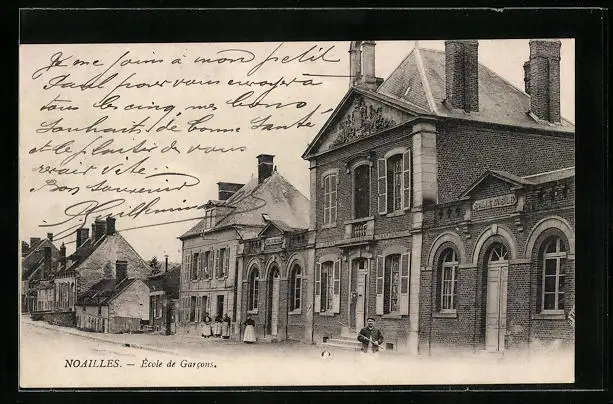 Je me joins à mon petit
Paul pour vous envoyer à
tous les cinq mes bons
Souhaits de bonne Santé
et le plaisir de vous
revoir vite.
Bon souvenir
NOAILLES. — École de Garçons.